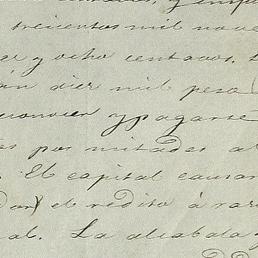 trecientos mil nove
y ocho centavos.
diez mil peso
reconocer y pagarse
por mitades al
El capital causar
de redito á raz
al. La alcabala y